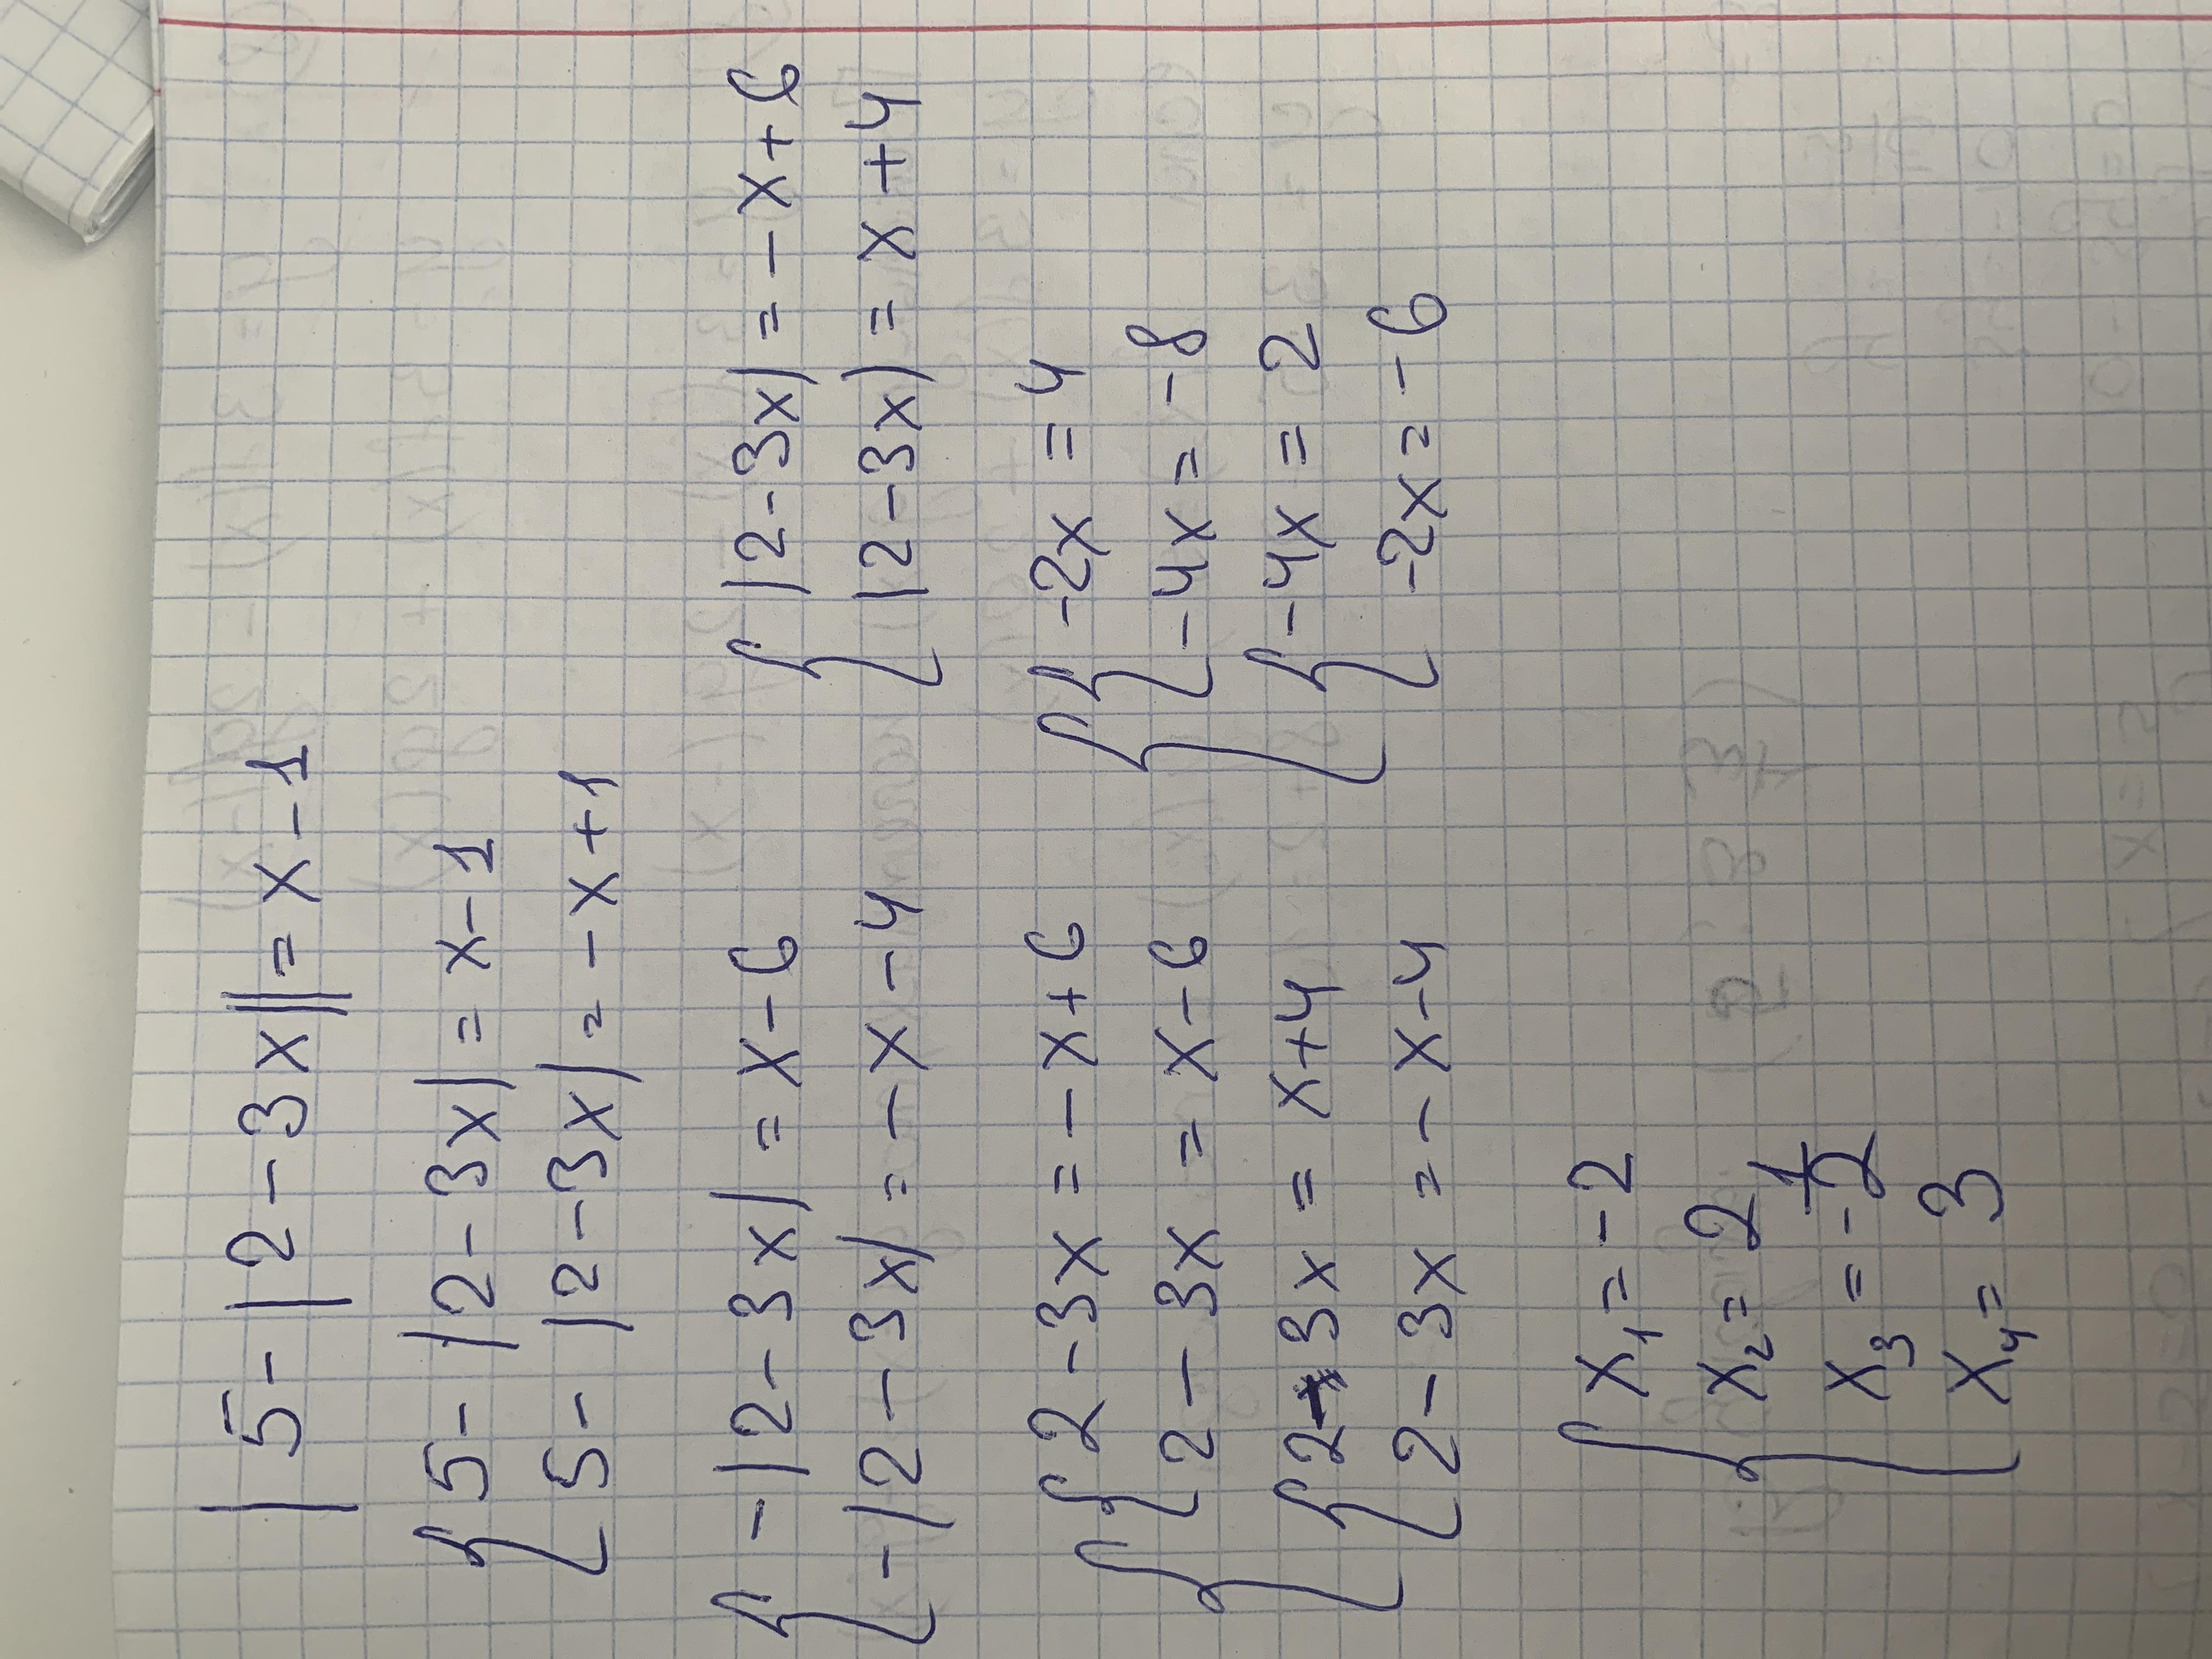 |5-|2-3x||=x-1
{5-|2-3x|=x-1
5-|2-3x|=-x+1
{-|2-3x|=x-6 {|2-3x|=-x+6
-|2-3x|=-x-4 |2-3x|=x+4
{{2-3x=-x+6 {{-2x=4
2-3x=x-6 -4x=-8
{2-3x=x+4 {-4x=2
2-3x=-x-4 -2x=-6
{x₁=-2
x₂=2
x₃=-1/2
x₄=3